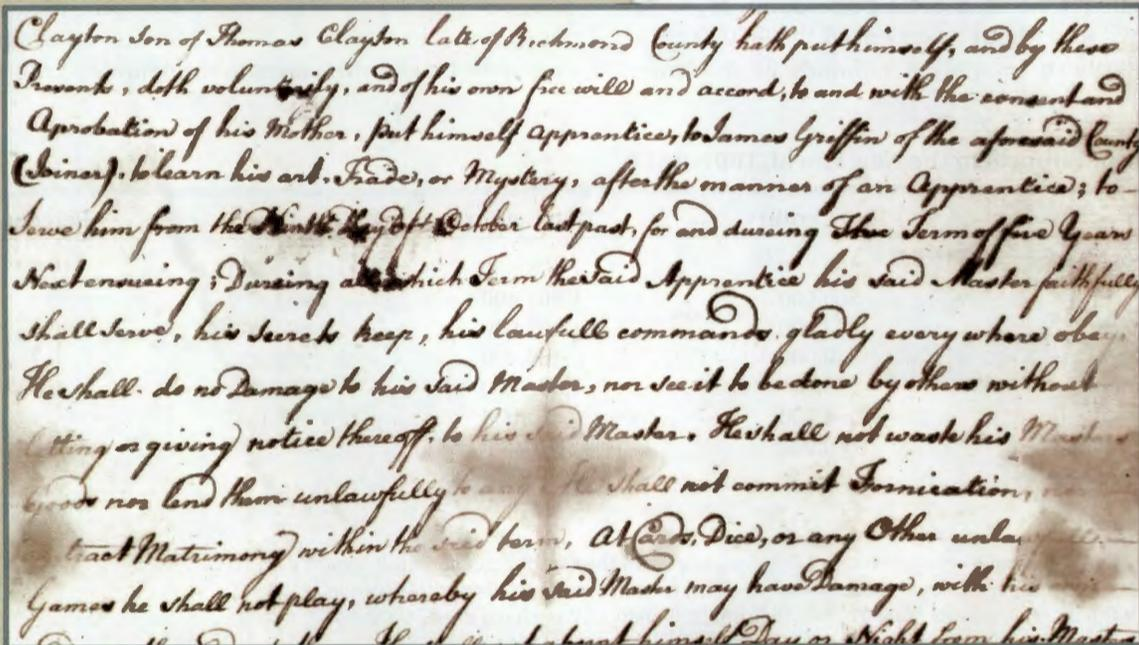 Clayton son of Thomas Clayton late of Richmond County hath put himself, and by these
Presents, doth voluntarily, and of his own free will and accord, to and with the consent and
Aprobation of his Mother, put himself apprentice, to James Griffin of the aforesaid County
(Joiner), to learn his art, Trade, or Mystery, after the manner of an Apprentice; to
serve him from the Ninth Day of October last past, for and dureing Thee Term of five Years
Next ensueing; Dureing all which Term the said Apprentice his said Master faithfully
shall serve, his secrets keep, his lawfull commands gladly every where obey.
He shall do no Damage to his said Master, nor see it to be done by others without
letting or giving notice thereoff, to his said Master. He shall not waste his Masters
goods nor lend them unlawfully to any He shall not commit Fornication, nor
Matrimony within the said term, At Cards, Dice, or any Other
Games he shall not play, whereby his said Master may have Damage, with his
He shall not absent himself Day or Night from his Masters